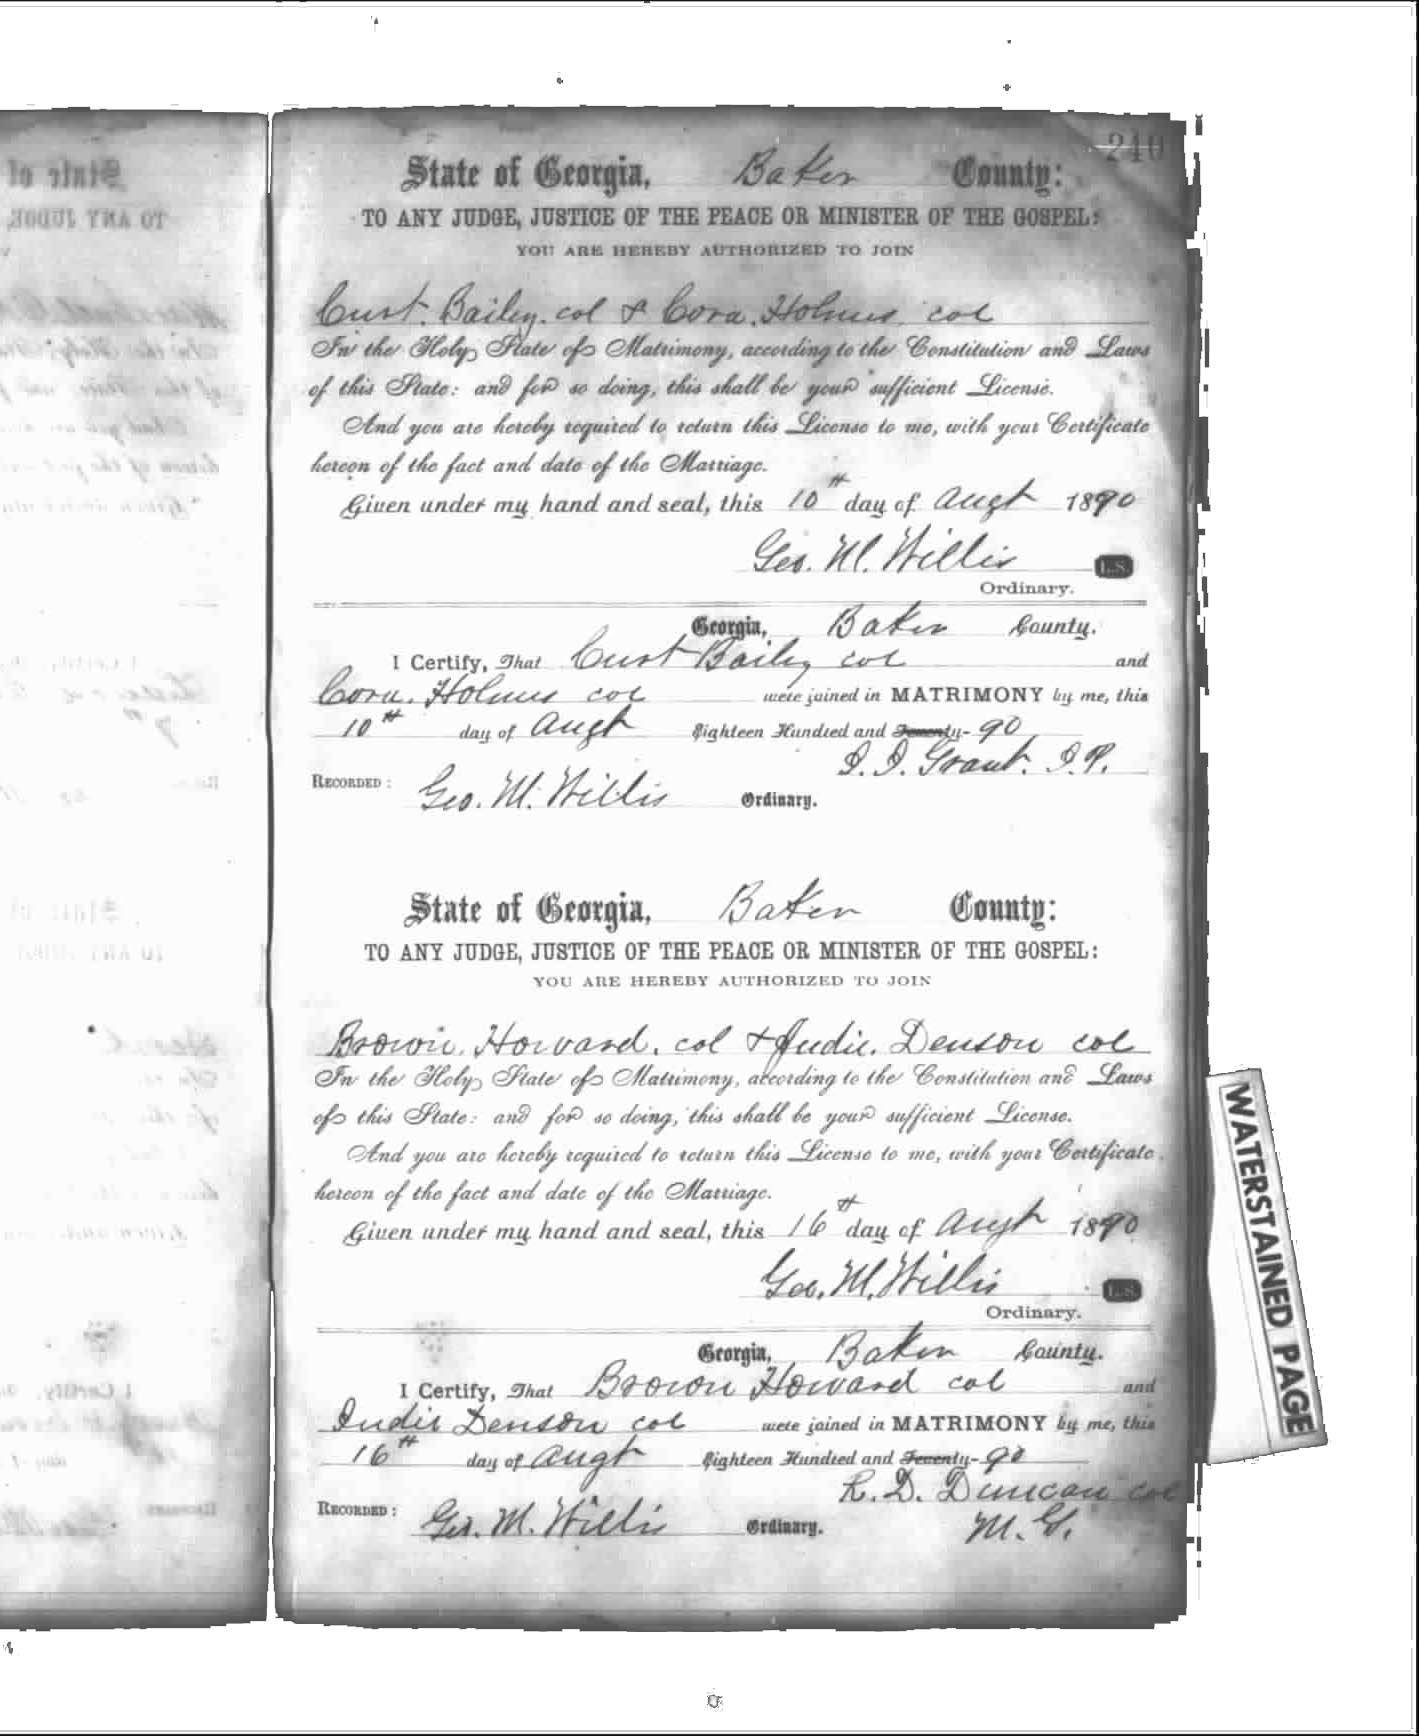 240
State of Georgia, Baker County:
TO ANY JUDGE, JUSTICE OF THE PEACE OR MINISTER OF THE GOSPEL:
YOU ARE HEREBY AUTHORIZED TO JOIN
Curt. Bailey. col & Cora. Holmes. col
In the Holy State of Matrimony, according to the Constitution and Laws
of this State: and for so doing, this shall be your sufficient License.
And you are hereby required to return this License to me, with your Certificate
hereon of the fact and date of the Marriage.
Given under my hand and seal, this 10th day of Augt 1890
Geo. M. Willis L.S.
Ordinary.
Georgia, Baker County.
I Certify, That Curt Bailey col and
Cora. Holmes col were joined in MATRIMONY by me, this
10th day of Augt Eighteen Hundred and Seventy- 90
Grant. J.P.
RECORDED: Geo. M. Willis Ordinary.
State of Georgia, Baker County:
TO ANY JUDGE, JUSTICE OF THE PEACE OR MINISTER OF THE GOSPEL:
YOU ARE HEREBY AUTHORIZED TO JOIN
Brown. Howard. col & Judie. Denson col
In the Holy State of Matrimony, according to the Constitution and Laws
of this State: and for so doing, this shall be your sufficient License.
And you are hereby required to return this License to me, with your Certificate
hereon of the fact and date of the Marriage.
Given under my hand and seal, this 16th day of Augt 1890
Geo. M. Willis L.S.
Ordinary.
Georgia, Baker County.
I Certify, That Brown Howard col and
Judie Denson col were joined in MATRIMONY by me, this
16th day of Augt Eighteen Hundred and Seventy- 90
R. D. Duncan col
RECORDED: Geo. M. Willis Ordinary. M. G.
WATERSTAINED PAGE